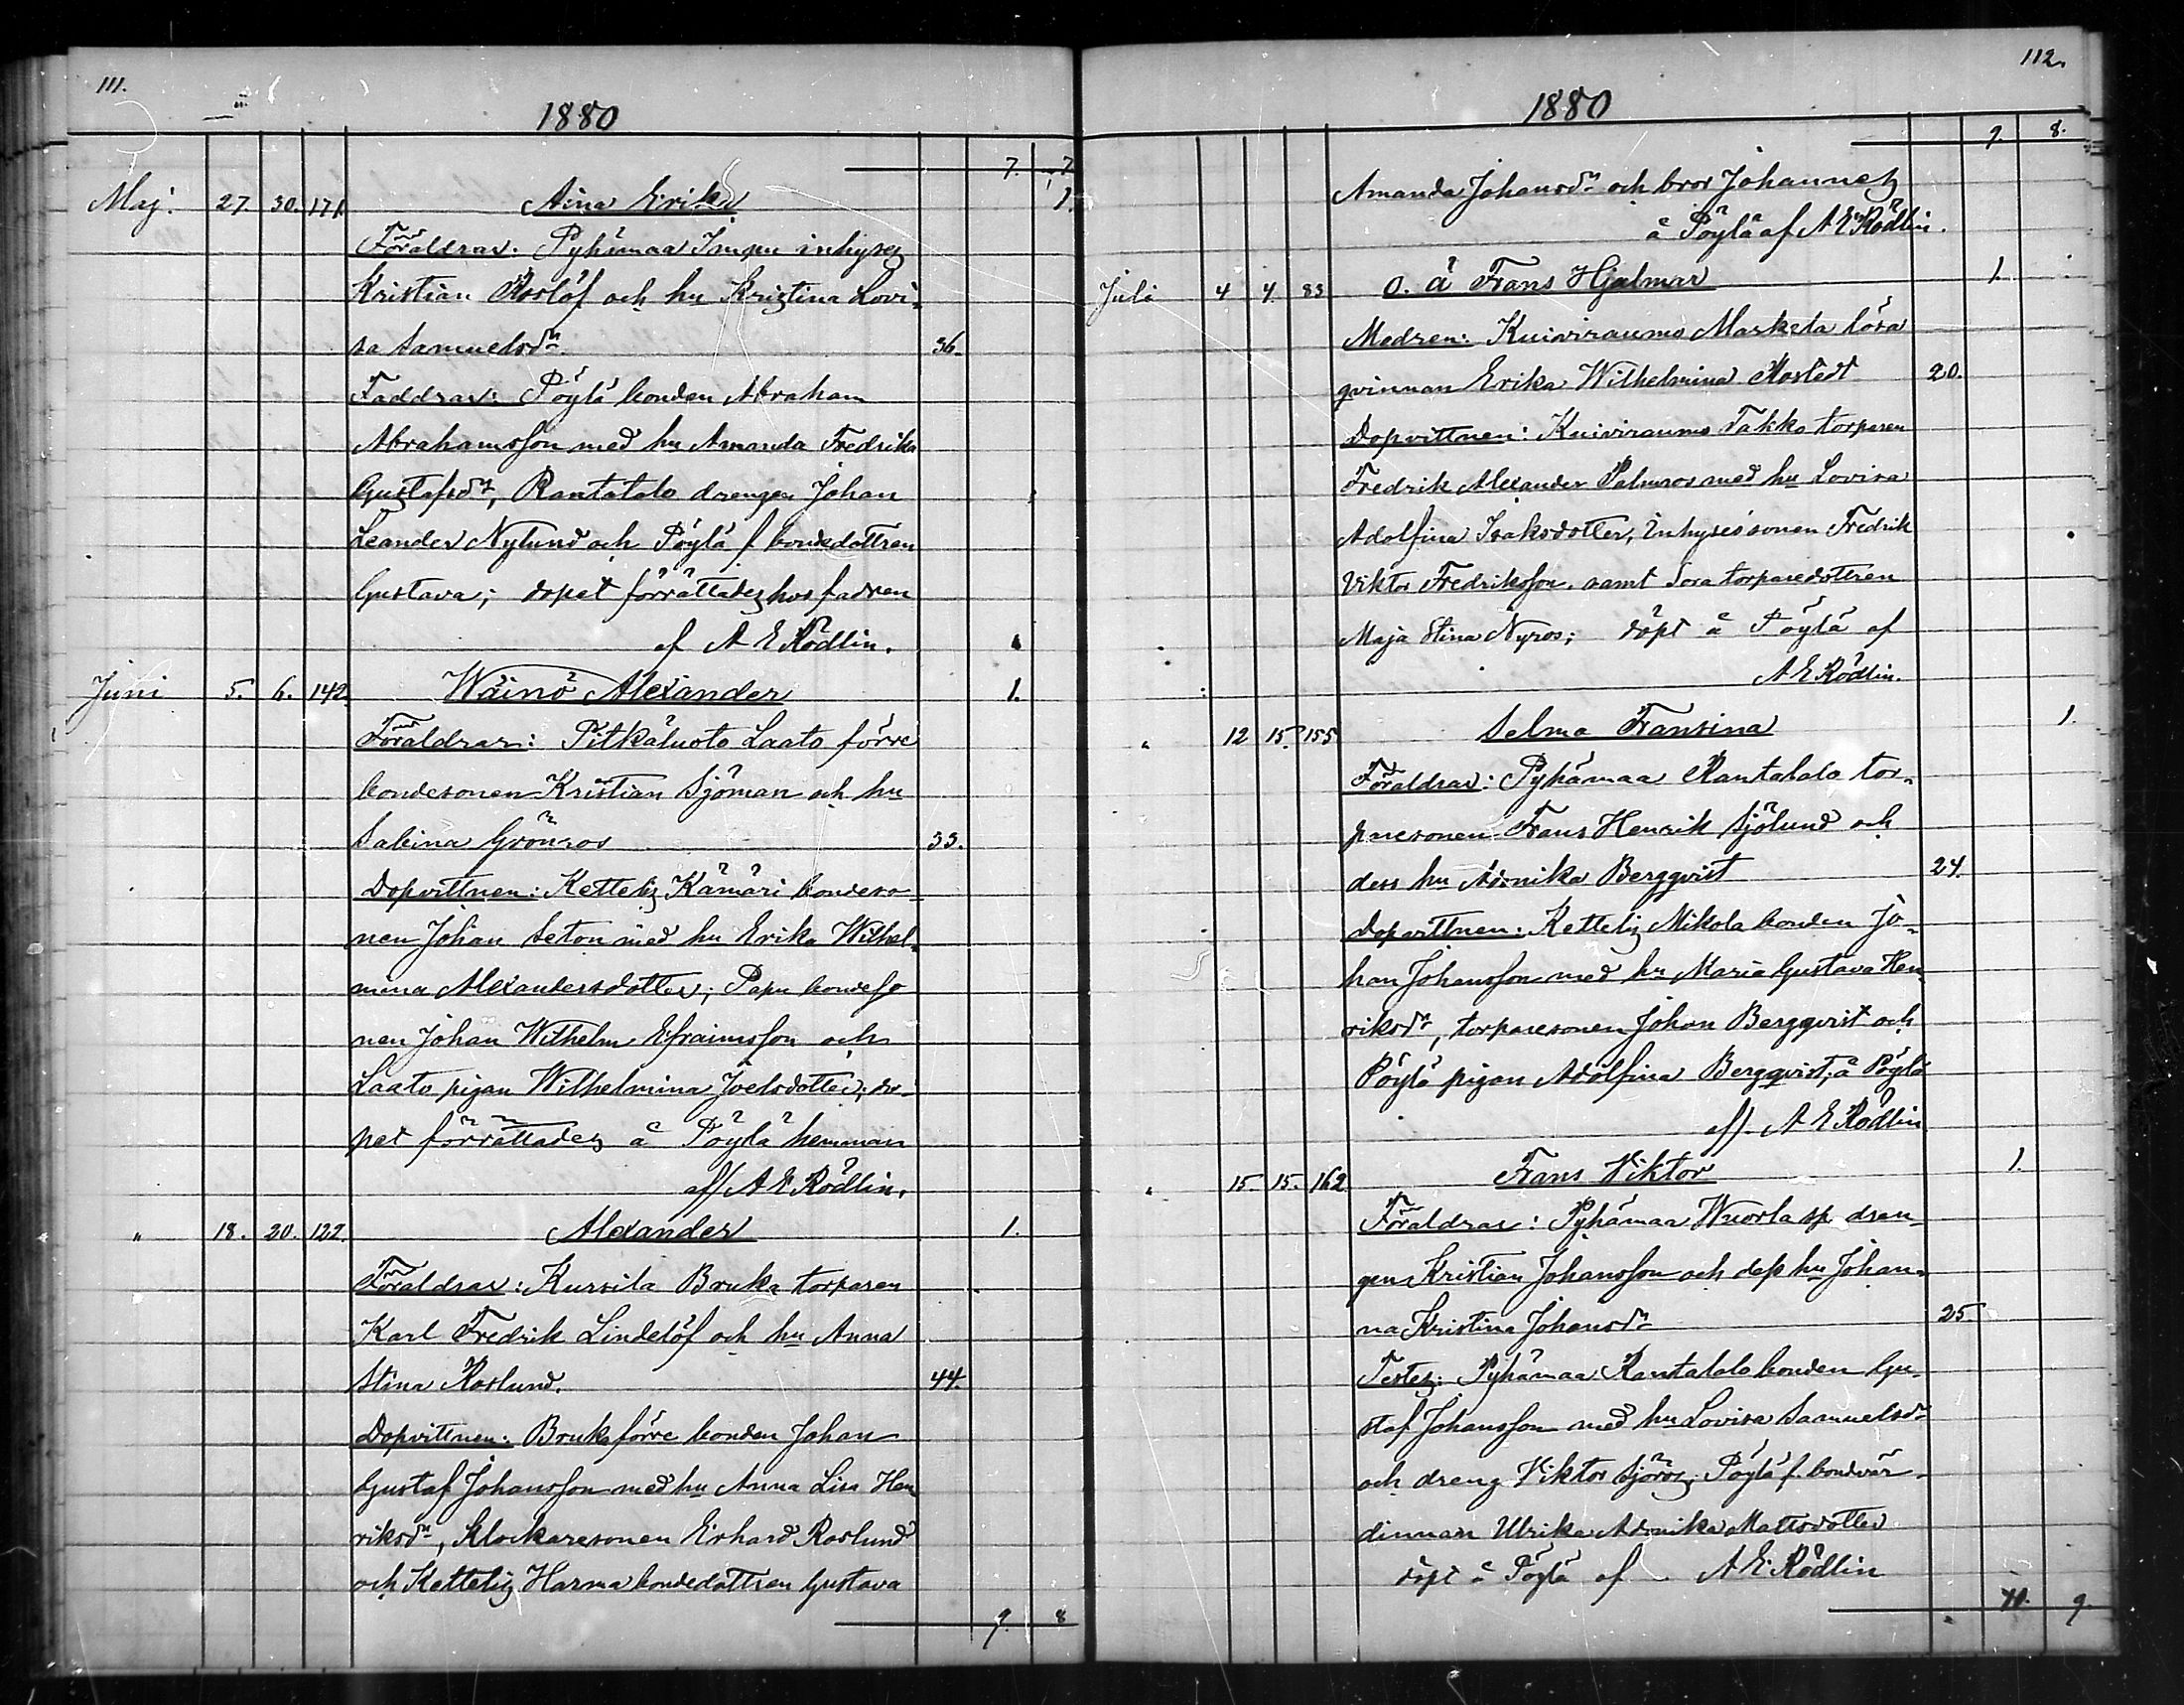 111.
1880
7. 7
Maj. 27. 30. 171. Aina Erika 1.
Föräldrar: Pyhämaa inhyses
Kristian Roslöf och hu Kristina Lovi-
sa Samuelsdr 36.
Faddrar: Pöylä bonden Abraham
Abrahamsson med hu Amanda Fredrika
Gustafsdr, Rantatalo drengen Johan
Leander Nylund och Pöylä f. bondedottren
Gustava; dopet förrättades hos fadren
af A E Rödlin.
Juni 5. 6. 142 Wäinö Alexander 1.
Föräldrar: Pitkäluoto Laato förre
bondesonen Kristian Sjöman och hu
Sabina Grönros 33.
Dopvittnen: Kettelis Kämäri bondeso-
nen Johan Seton med hu Erika Wilhel-
mina Alexandersdotter; Papu bondeso
nen Johan Wilhelm Efraimsson och
Laato pigan Wilhelmina Joelsdotter; do-
pet förrättades å Pöylä hemman
aff A E Rödlin.
" 18. 20. 122. Alexander 1.
Föräldrar: Kursila Bruka torparen
Karl Fredrik Lindelöf och hu Anna
Stina Roslund. 44.
Dopvittnen: Bruka förre bonden Johan
Gustaf Johansson med hu Anna Lisa Hen
riksdr, Klockaresonen Erhard Roslund
och Kettelis Harma bondedottren Gustava
9. 8
112.
1880
9. 8.
Amanda Johansdr och bror Johannes
å Pöylä af A E Rödlin.
Juli 4 4. 83 o. ä Frans Hjalmar 1.
Modren: Kuiviraumo Marketa lösa
qvinnan Erika Wilhelmina Rostedt 20.
Dopvittnen: Kuiviraumo Takko torparen
Fredrik Alexander Palmros med hu Lovisa
Adolfina Isaksdotter, Inhysessonen Fredrik
Viktor Fredriksson samt Sora torparedottren
Maja Stina Nyros; döpt å Pöylä af
A E Rödlin.
" 12 15. 155 Selma Fransina 1.
Föräldrar: Pyhämaa Rantatalo tor-
paresonen Frans Henrik Sjölund och
dess hu Adonika Bergqvist 24.
Dopvittnen: Kettelis Mikola bonden Jo-
han Johansson med hu Maria Gustava Hen
riksdr, torparesonen Johan Bergqvist och
Pöylä pigan Adolfina Bergqvist, å Pöylä
aff A E Rödlin
" 15. 15. 162. Frans Viktor 1.
Föräldrar: Pyhämaa Wuorla sp. dren-
gen Kristian Johansson och dess hu Johan-
na Kristina Johansdr 25.
Testes: Pyhämaa Rantatalo bonden Gu-
staf Johansson med hu Lovisa Samuelsdr
och dreng Viktor Sjöros; Pöylä f. bondvär-
dinnan Ulrika Adonika Mattsdotter
döpt å Pöylä af A E Rödlin
9.